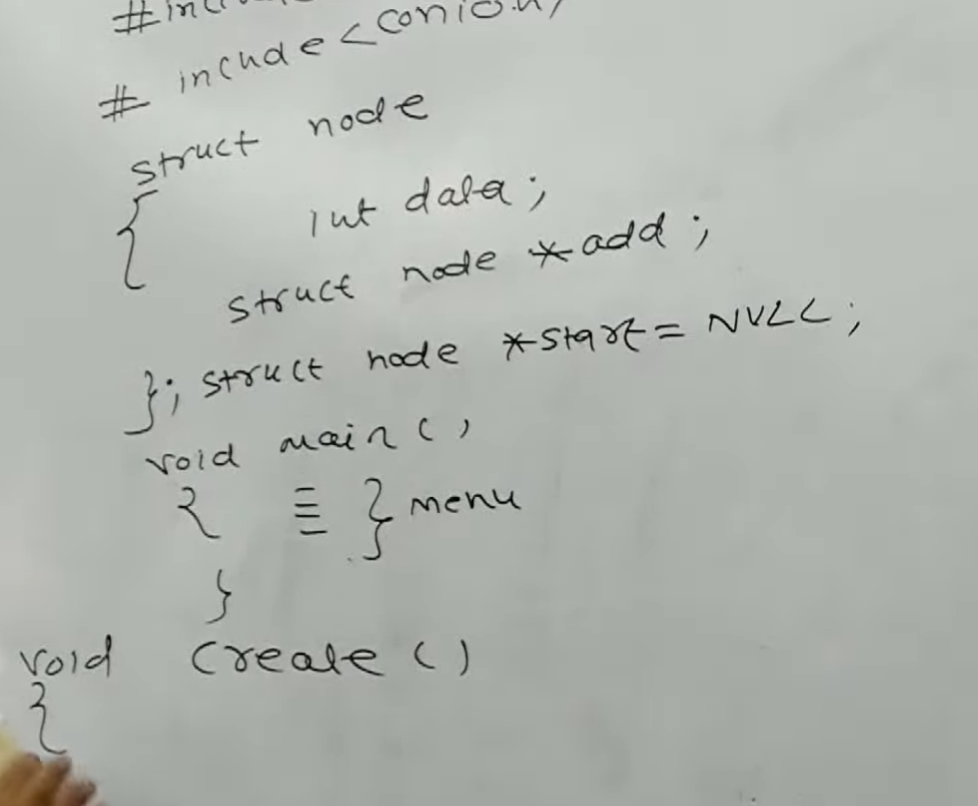 # include<conio.h>
struct node
{ int data;
struct node *add;
}; struct node *start = NULL;
void main()
{ } menu
}
void create()
{